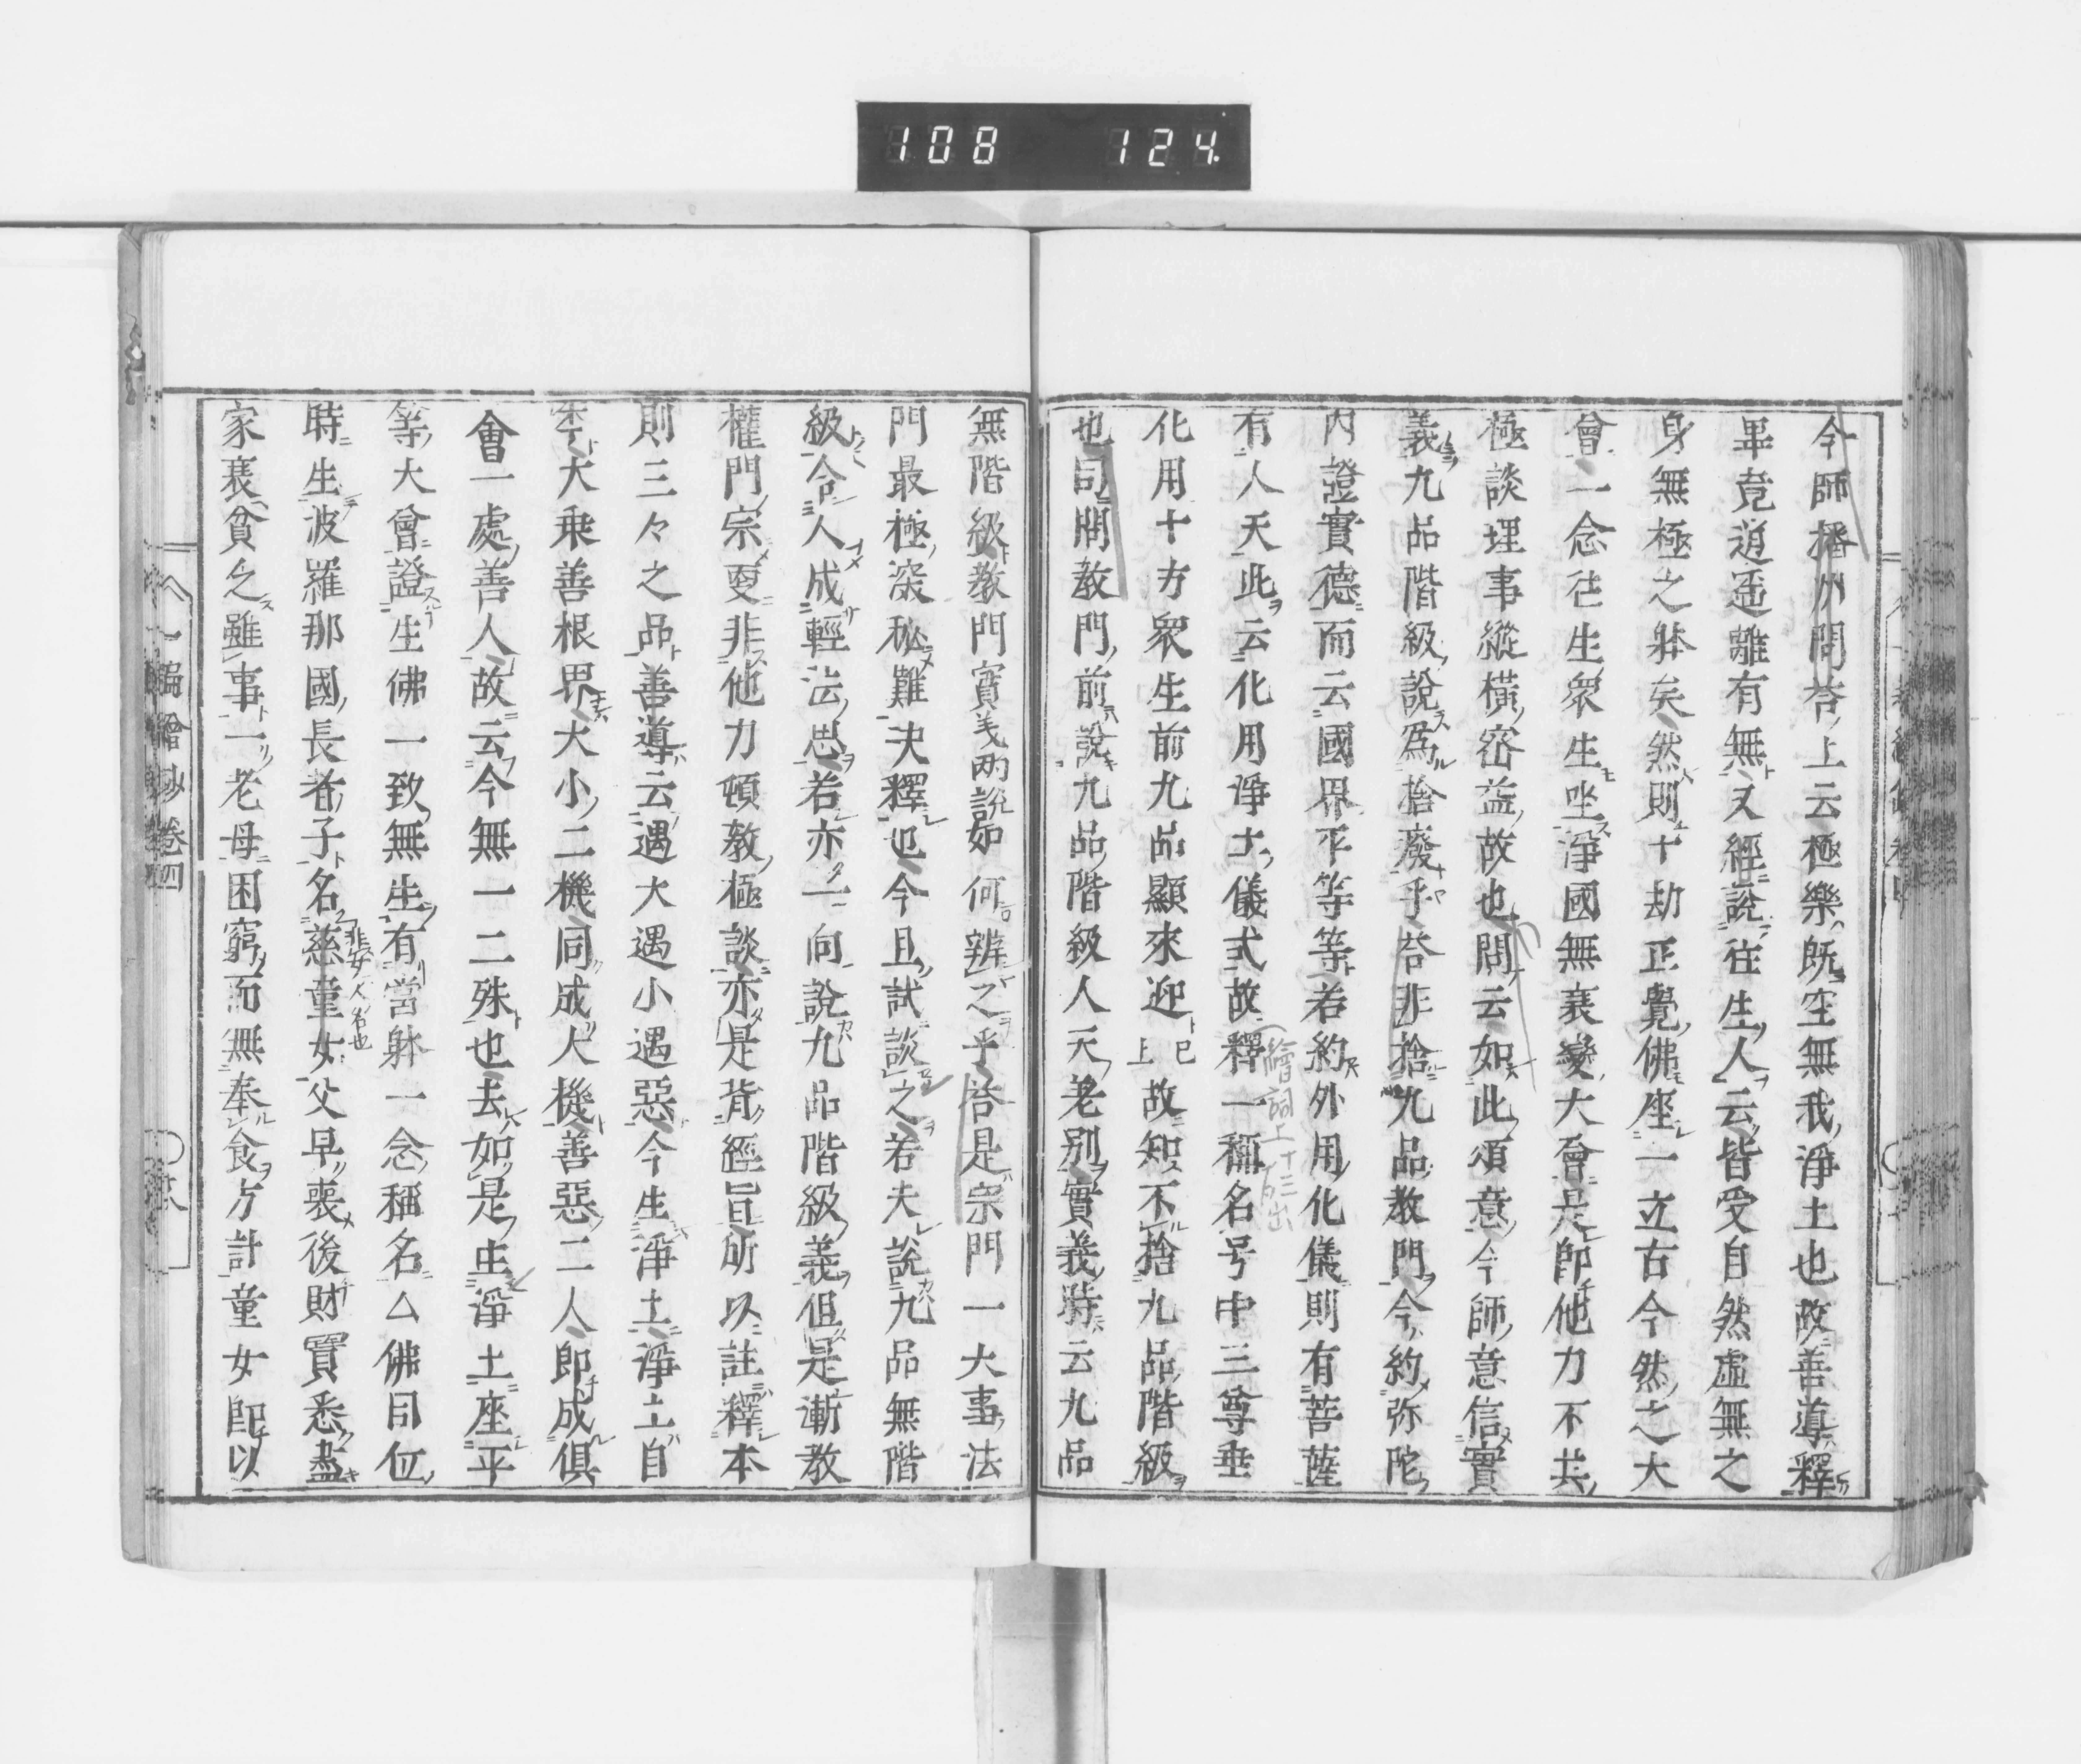 108 124
今師播州問荅上云極樂既空無我淨土也故善導釋
畢竟逍遥離有無又經說往生人云皆受自然虛無之
身無極之躰矣然則十劫正覺佛座一立古今然之大
會一念往生衆生坐淨國無衰變大會是即他力不共
極談理事縱橫密益故也問云如此頌意今師意信實
義九品階級說爲捨廢乎荅非捨九品教門今約弥陀
内證實德而云國界平等等若約外用化儀則有菩薩
有人天此云化用淨土儀式故釋一稱名号中三尊垂
化用十方衆生前九品顯來迎已上故知不捨九品階級
也同問教門前說九品階級人天差别實義時云九品
繪詞上十三出
無階級教門實義兩說如何辨之乎荅是宗門一大事法
門最極深秘難決釋也今且試談之若夫說九品無階
級令人成輕法思若亦一向說九品階級義但是漸教
權門宗更非他力頓教極談亦是背經旨所以註釋本
則三々之品善導云遇大遇小遇惡今生淨土淨土自
本大乗善根界大小二機同成人機善惡二人即成俱
會一處善人故云今無一二殊也去如是生淨土座平
等大會證生佛一致無生有営躰一念稱名厶佛同位
時生波羅那國長者子名慈童女父早喪後財寳悉盡
非女人名也
家衰貧乏雖事一老母困窮而無奉食方計童女即以
一遍繪抄卷四